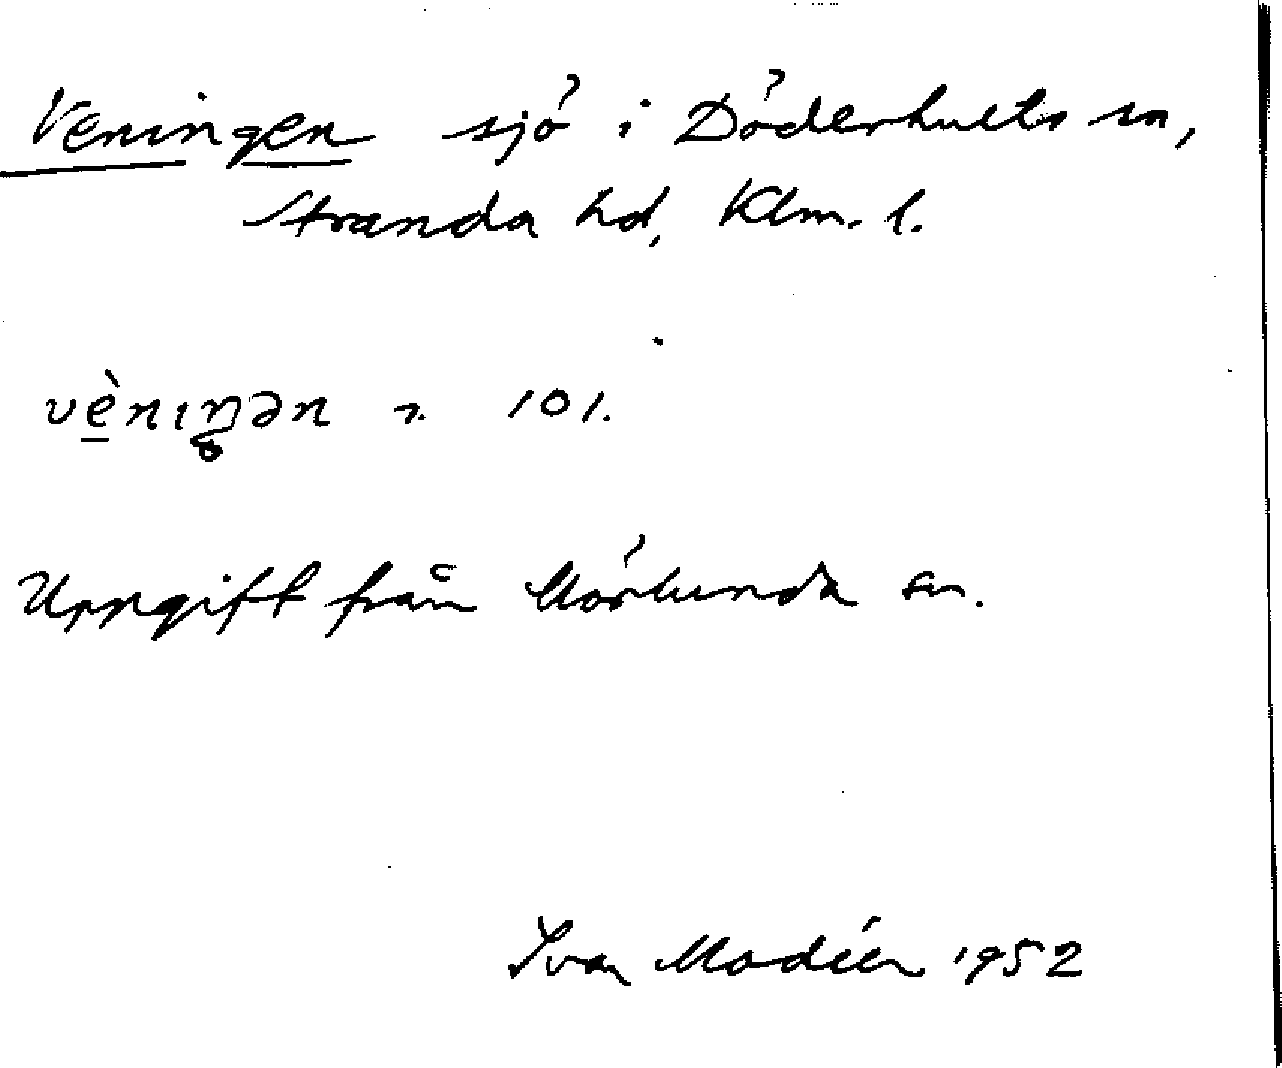 Veningen sjö i Döderhults sn,
Stranda hd, Klm. l.
vèniŋən 101.
Uppgift från Mörlunda sn.
Ivar Modéer 1952